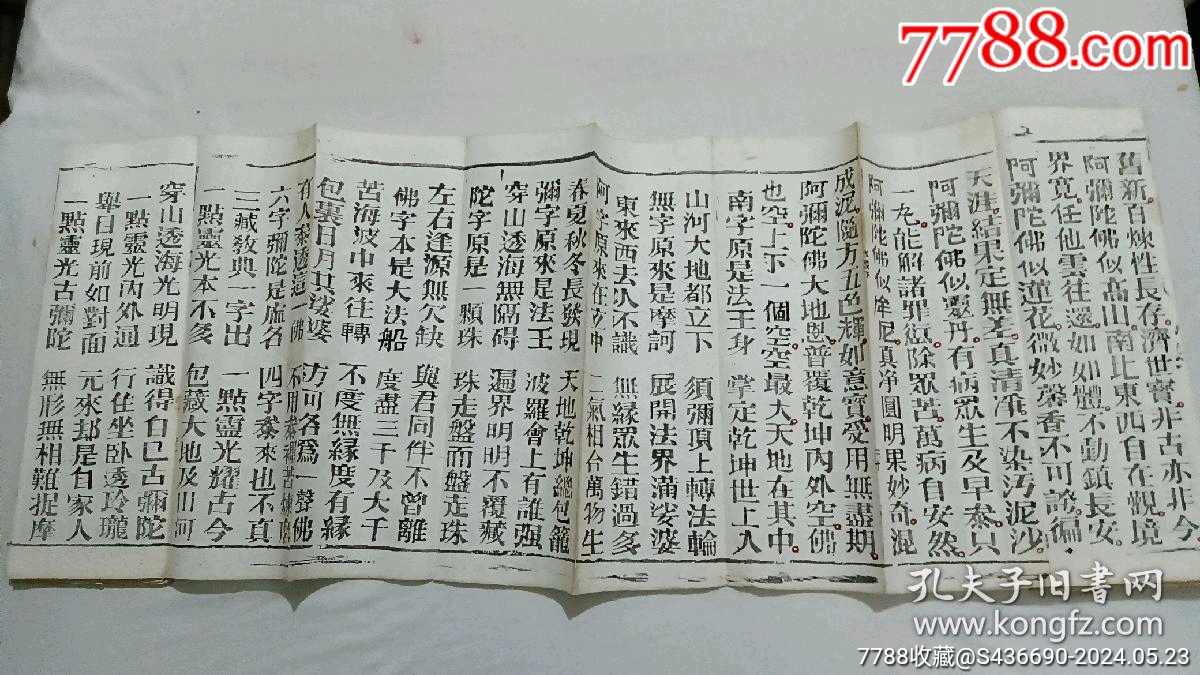 舊新百煉性長存濟世寶非古亦非今
阿彌陀佛似高山南北東西自在觀境
界寬任他雲往還如如體不動鎮長安
阿彌陀佛似蓮花微妙馨香不可誇徧
天涯結果定無差真清淨不染汚泥沙
阿彌陀佛似靈丹有病眾生及早叅只
一丸能解諸罪愆除眾苦萬病自安然
阿彌陀佛似牟尼真淨圓明果妙奇混
成泥隨方五色輝如意寶受用無盡期
阿彌陀佛大地恩普覆乾坤內外空佛
也空上下一個空空最大天地在其中
南字原是法王身 掌定乾坤世上人
山河大地都立下 須彌頂上轉法輪
無字原來是摩訶 展開法界滿娑婆
東來西去人不識 無緣眾生錯過多
阿字原來在 中 二氣相台萬物生
春夏秋冬長發現 天地乾坤總包籠
彌字原來是法王 波羅會上有誰强
穿山透海無隔碍 遍界明明不覆藏
陀字原是一顆珠 珠走盤而盤走珠
左右逢源無欠缺 與君同伴不曾離
佛字本是大法船 度盡三千及大千
苦海波中來往轉 不度無緣度有緣
包裹日月其娑婆 方可名爲一聲佛
有人叅透這一佛 不用叅禪苦煉磨
六字彌陀是虛名 四字叅來也不真
三藏教典一字出 一點靈光耀古今
一點靈光本不多 包藏大地及山河
穿山透海光明現 識得自己古彌陀
一點靈光內外通 行住坐卧透玲瓏
舉目現前如對面 元來却是自家人
一點靈光古彌陀 無形無相難捉摩
7788.com
孔夫子旧书网
www.kongfz.com
7788收藏@S436690-2024.05.23